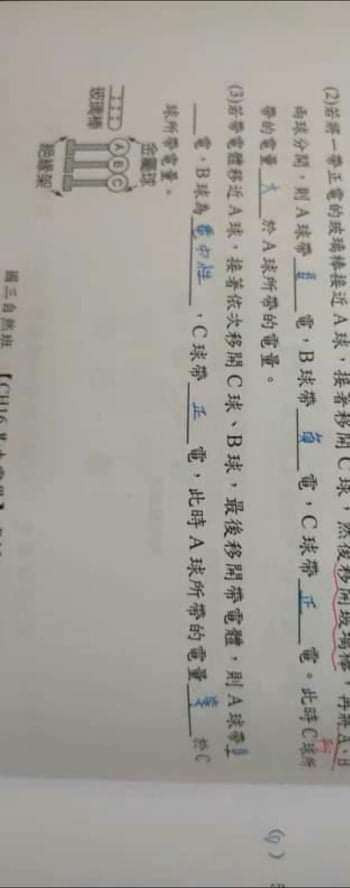 (2)若將一帶正電的玻璃棒接近A球，接著移開C球，然後移開玻璃棒，再將A、B
兩球分開，則A球帶 負 電，B球帶 負 電，C球帶 正 電。此時C球所
帶的電量 大 於A球所帶的電量。
(3)若帶電體移近A球，接著依次移開C球、B球，最後移開帶電體，則A球帶負
電，B球為 電中性 ，C球帶 正 電，此時A球所帶的電量 等 於C
球所帶電量。
金屬球
A B C
玻璃棒
絕緣架
國三自然班